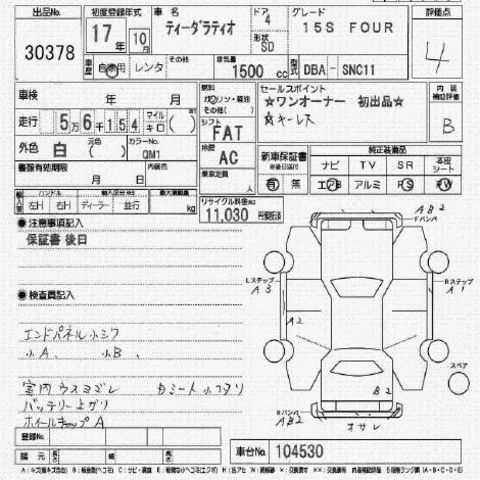 出品No. 初度登録年式 車名 ドア グレード 評価点
30378 17年 10月 ティーダラティオ 4 15S FOUR 4
形状 SD
車歴 自家用 レンタ その他 排気量 1500 cc 型式 DBA - SNC11
車検 年 月 燃料 ガソリン・軽油 その他( ) セールスポイント 内装補助評価
☆ワンオーナー 初出品☆ B
☆キーレス
走行 5万6千154 マイル キロ ( ) シフト FAT
外色 白 元色( ) カラーNo. QM1 冷房 AC 新車保証書 純正装備品
有 無 ナビ TV SR 本皮シート
エアB アルミ PS PW
書類有効期限 月 日 内装色 乗車定員 人
輸入車 ハンドル 左H 右H 輸入区分 ディーラー 並行 最大積載量 kg リサイクル料金 11,030 円
●注意事項記入
保証書 後日
●検査員記入
エンドパネル小シワ
小A、 小B、
室内 ウスヨゴレ
バッテリー上ガリ
ホイールキャップA
AB2
Fバンパ
Lステップ A3
Rステップ A1
A2
B2
スペア
Rバンパ AB2
オサレ
登録No.
車台No. 104530